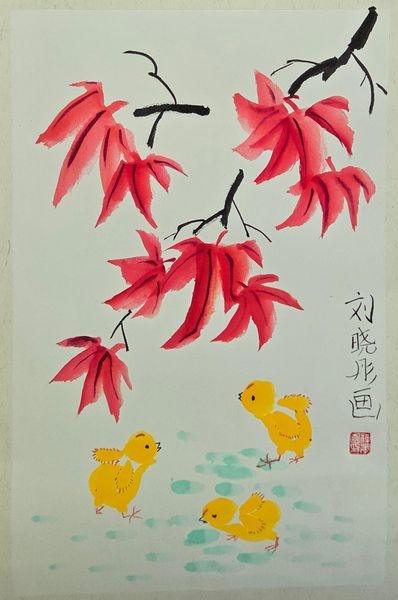 刘晓彤画